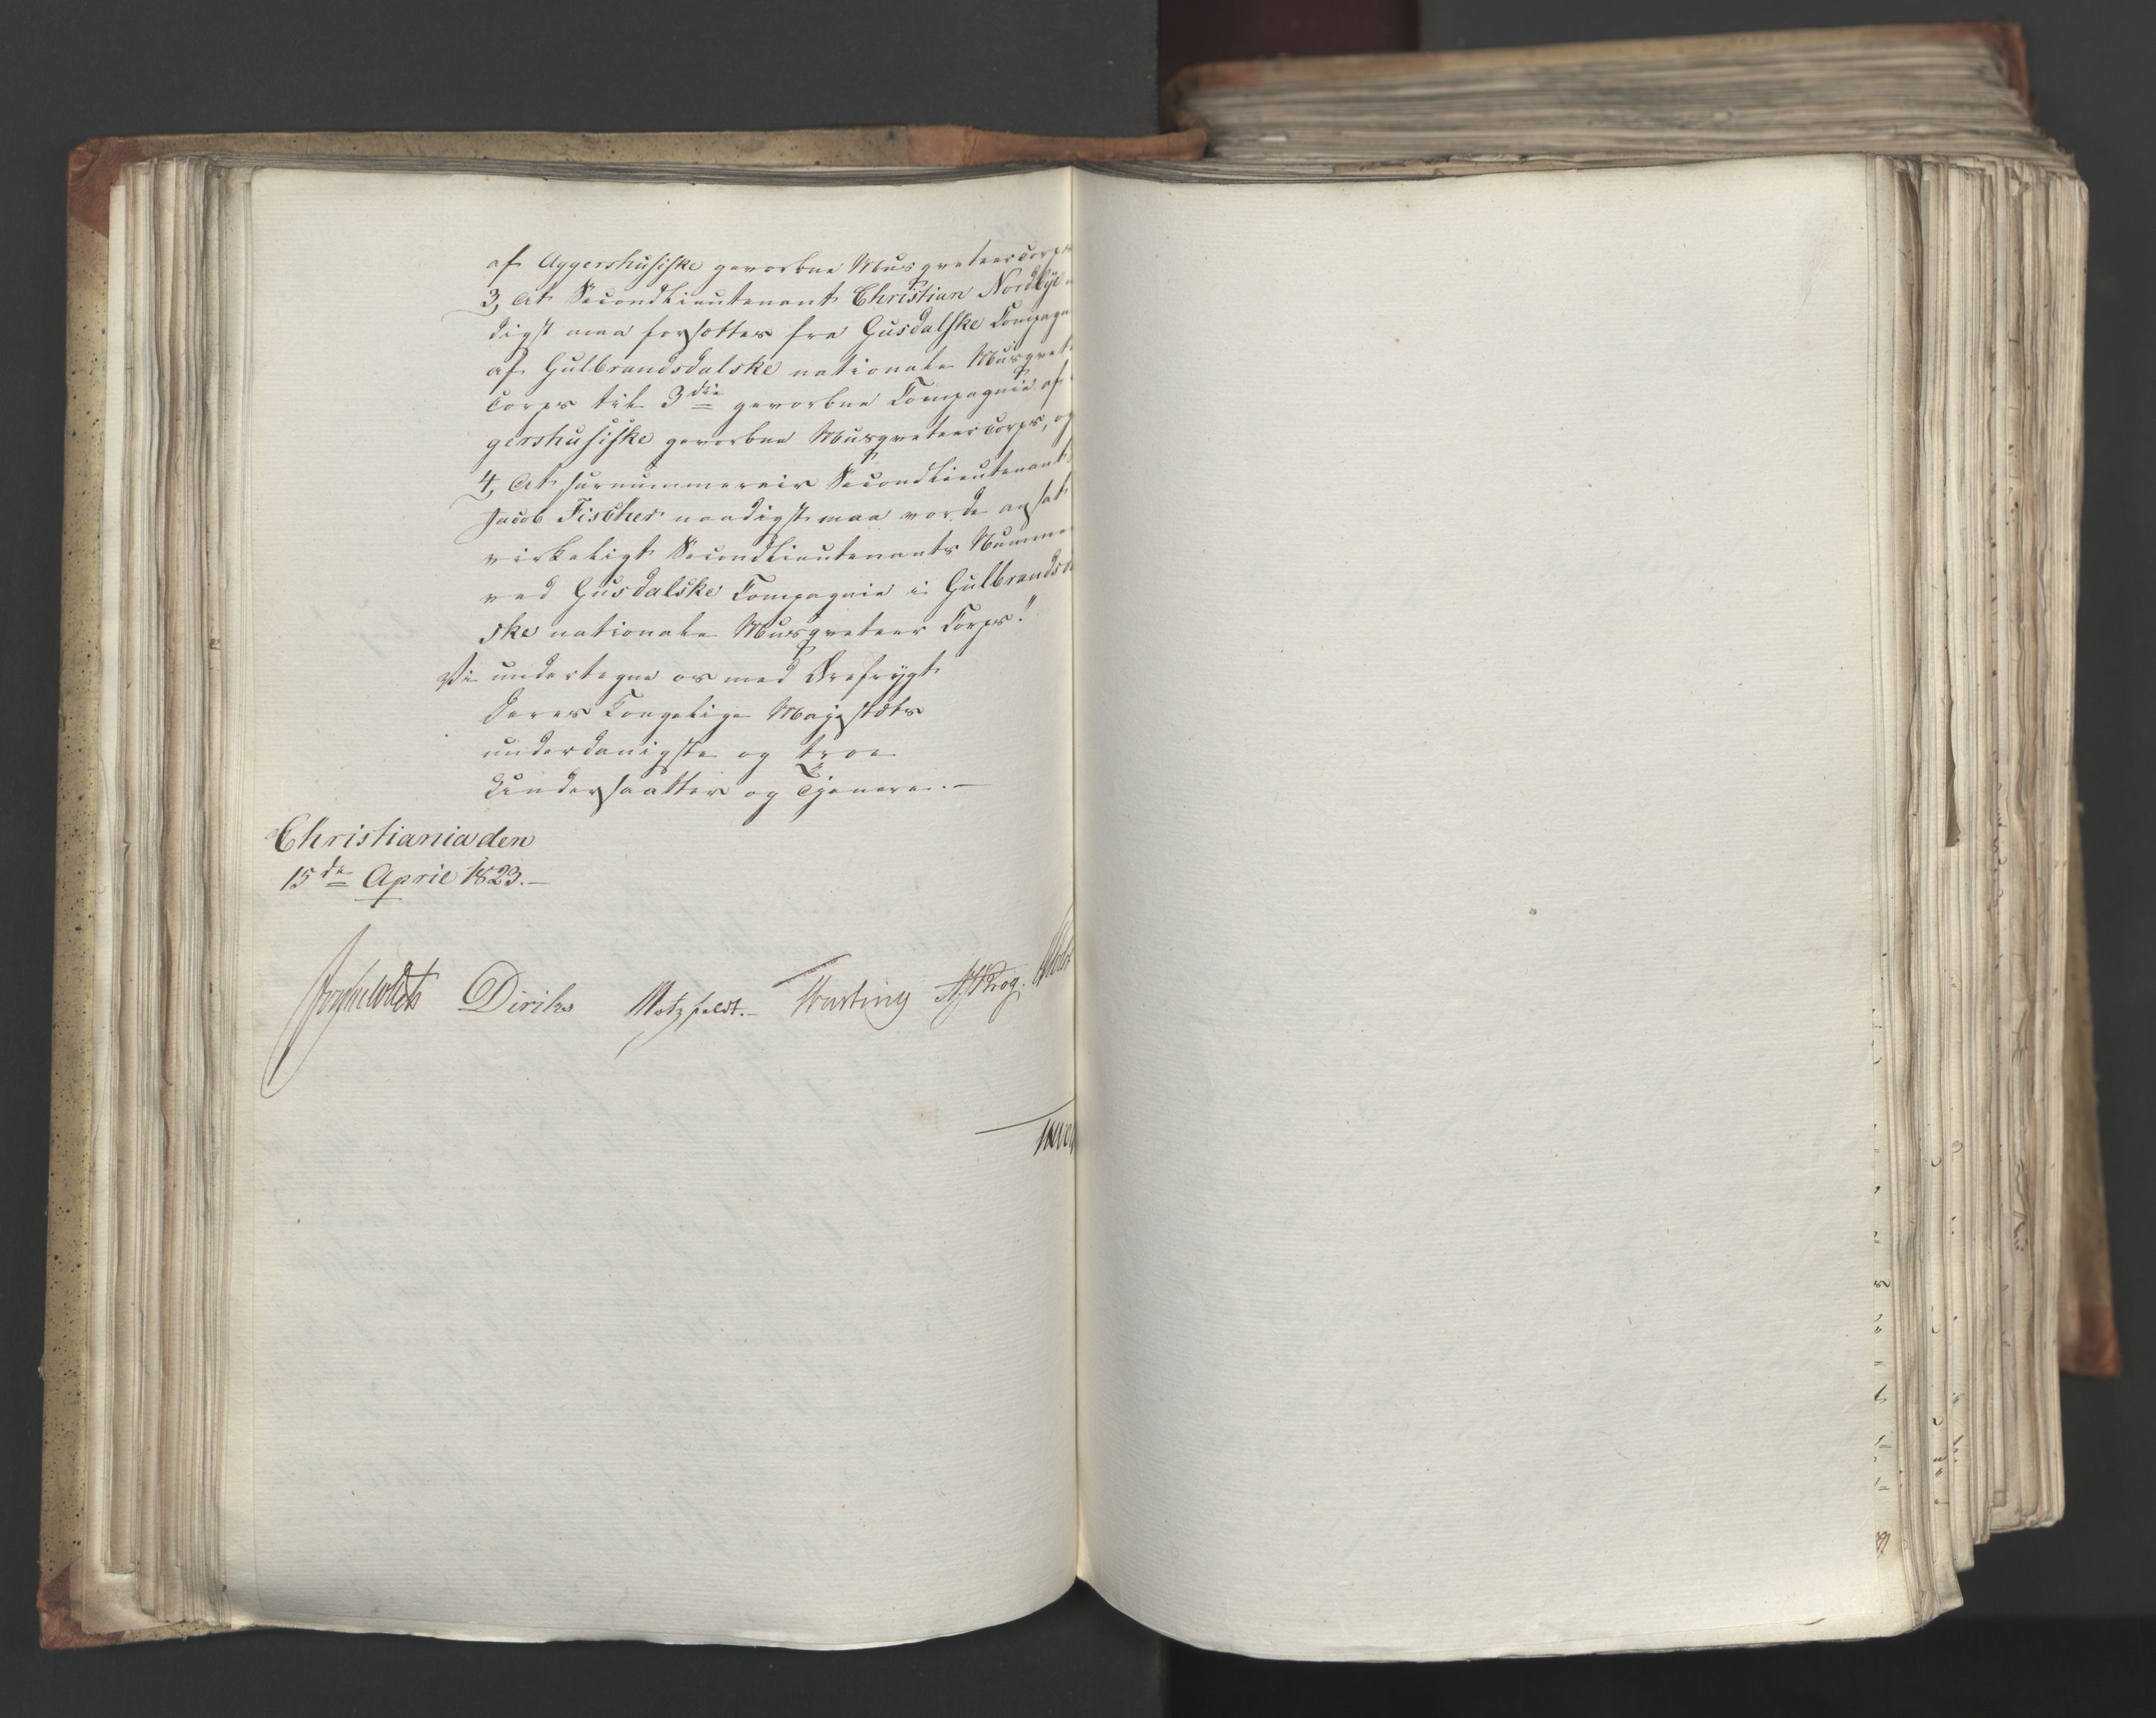 af Aggershusiske gevorbne Musqveteercorps
3, At SecondLieutenant Christian Nordbye
digst maa forsættes fra Gusdalske Compagn
af Gulbrandsdalske nationale Musqvet
Corps til 3die gevorbne Compagnie af
gershusiske gevorbne Musqveteercorps, og
4, At surnummerair SecondLieutenant
Jacob Fischer naadigst maa vorde ansat
virkeligt SecondLieutenants Nummer
ved Gusdalske Compagnie i Gulbrandsd
ske nationale Musqveteer Corps."
Vi undertegne os med Ærefrygt
Deres Kongelige Majestæts
underdanigste og troe
Undersaatter og Tjenere.—
Christiania den
15de April 1823.—
Diriks Motzfeldt.— Krog.